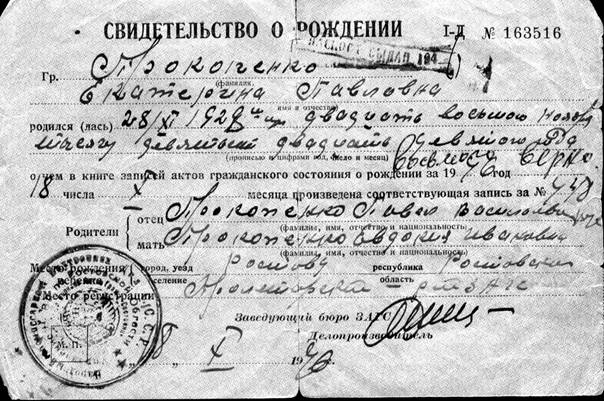 СВИДЕТЕЛЬСТВО О РОЖДЕНИИ I-Д № 163516
ПАСПОРТ ВЫДАН 194
Гр. Прокопенко
(фамилия)
Екатерина Павловна
имя и отчество)
родился (лась) 28/XI 1929 двадцать восьмого Ноября
месяца девятьсот двадцать девятого года
(прописью и цифрами год, число и месяц)
о чем в книге записей актов гражданского состояния о рождении за 19 год
18 числа X месяца произведена соответствующая запись за №
Родители отец Прокопенко Павел Васильевич
(фамилия, имя, отчество и национальность)
мать Прокопенко Евдокия Ивановна
(фамилия, имя, отчество и национальность)
Место рождения город, уезд Ростов республика Ростовская
селение область
Место регистрации Пролетарское ЗАГС
Заведующий бюро ЗАГС
Делопроизводитель
М. П.
18 X 19